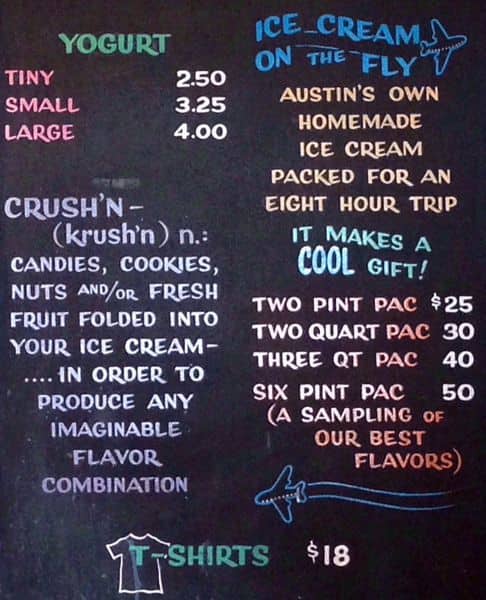 YOGURT
TINY 2.50
SMALL 3.25
LARGE 4.00
CRUSH'N -
(krush'n) n.:
CANDIES, COOKIES,
NUTS AND/OR FRESH
FRUIT FOLDED INTO
YOUR ICE CREAM-
.... IN ORDER TO
PRODUCE ANY
IMAGINABLE
FLAVOR
COMBINATION
ICE CREAM
ON THE FLY
AUSTIN'S OWN
HOMEMADE
ICE CREAM
PACKED FOR AN
EIGHT HOUR TRIP
IT MAKES A
COOL GIFT!
TWO PINT PAC $25
TWO QUART PAC 30
THREE QT PAC 40
SIX PINT PAC 50
(A SAMPLING OF
OUR BEST
FLAVORS)
T-SHIRTS $18